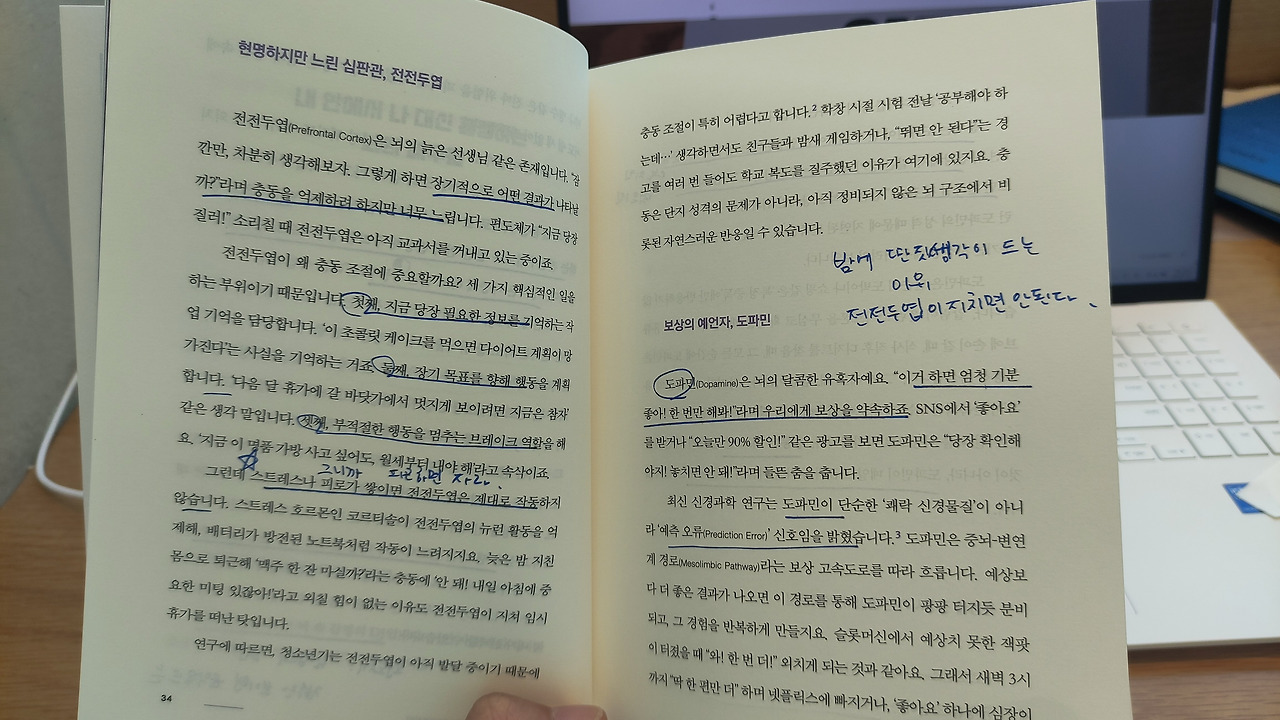 현명하지만 느린 심판관, 전전두엽
전전두엽(Prefrontal Cortex)은 뇌의 늙은 선생님 같은 존재입니다. “잠
깐만, 차분히 생각해보자. 그렇게 하면 장기적으로 어떤 결과가 나타날
까?”라며 충동을 억제하려 하지만 너무 느립니다. 편도체가 “지금 당장
질러!” 소리칠 때 전전두엽은 아직 교과서를 꺼내고 있는 중이죠.
전전두엽이 왜 충동 조절에 중요할까요? 세 가지 핵심적인 일을
하는 부위이기 때문입니다. 첫째, 지금 당장 필요한 정보를 기억하는 작
업 기억을 담당합니다. ‘이 초콜릿 케이크를 먹으면 다이어트 계획이 망
가진다’는 사실을 기억하는 거죠. 둘째, 장기 목표를 향해 행동을 계획
합니다. ‘다음 달 휴가에 갈 바닷가에서 멋지게 보이려면 지금은 참자’
같은 생각 말입니다. 셋째, 부적절한 행동을 멈추는 브레이크 역할을 해
요. ‘지금 이 명품 가방 사고 싶어도, 월세부터 내야 해’라고 속삭이죠.
그니까 피곤하면 자라.
그런데 스트레스나 피로가 쌓이면 전전두엽은 제대로 작동하지
않습니다. 스트레스 호르몬인 코르티솔이 전전두엽의 뉴런 활동을 억
제해, 배터리가 방전된 노트북처럼 작동이 느려지지요. 늦은 밤 지친
몸으로 퇴근해 ‘맥주 한 잔 마실까?’라는 충동에 ‘안 돼! 내일 아침에 중
요한 미팅 있잖아!’라고 외칠 힘이 없는 이유도 전전두엽이 지쳐 임시
휴가를 떠난 탓입니다.
연구에 따르면, 청소년기는 전전두엽이 아직 발달 중이기 때문에
34
충동 조절이 특히 어렵다고 합니다.² 학창 시절 시험 전날 ‘공부해야 하
는데…’ 생각하면서도 친구들과 밤새 게임하거나, “뛰면 안 된다”는 경
고를 여러 번 들어도 학교 복도를 질주했던 이유가 여기에 있지요. 충
동은 단지 성격의 문제가 아니라, 아직 정비되지 않은 뇌 구조에서 비
롯된 자연스러운 반응일 수 있습니다.
밤에 딴짓생각이 드는
이유,
전전두엽이 지치면 안된다.
보상의 예언자, 도파민
도파민(Dopamine)은 뇌의 달콤한 유혹자예요. “이거 하면 엄청 기분
좋아! 한 번만 해봐!”라며 우리에게 보상을 약속하죠. SNS에서 ‘좋아요’
를 받거나 “오늘만 90% 할인!” 같은 광고를 보면 도파민은 “당장 확인해
야지! 놓치면 안 돼!”라며 들뜬 춤을 춥니다.
최신 신경과학 연구는 도파민이 단순한 ‘쾌락 신경물질’이 아니
라 ‘예측 오류(Prediction Error)’ 신호임을 밝혔습니다.³ 도파민은 중뇌-변연
계 경로(Mesolimbic Pathway)라는 보상 고속도로를 따라 흐릅니다. 예상보
다 더 좋은 결과가 나오면 이 경로를 통해 도파민이 팡팡 터지듯 분비
되고, 그 경험을 반복하게 만들지요. 슬롯머신에서 예상치 못한 잭팟
이 터졌을 때 “와! 한 번 더!” 외치게 되는 것과 같아요. 그래서 새벽 3시
까지 “딱 한 편만 더” 하며 넷플릭스에 빠지거나, ‘좋아요’ 하나에 심장이